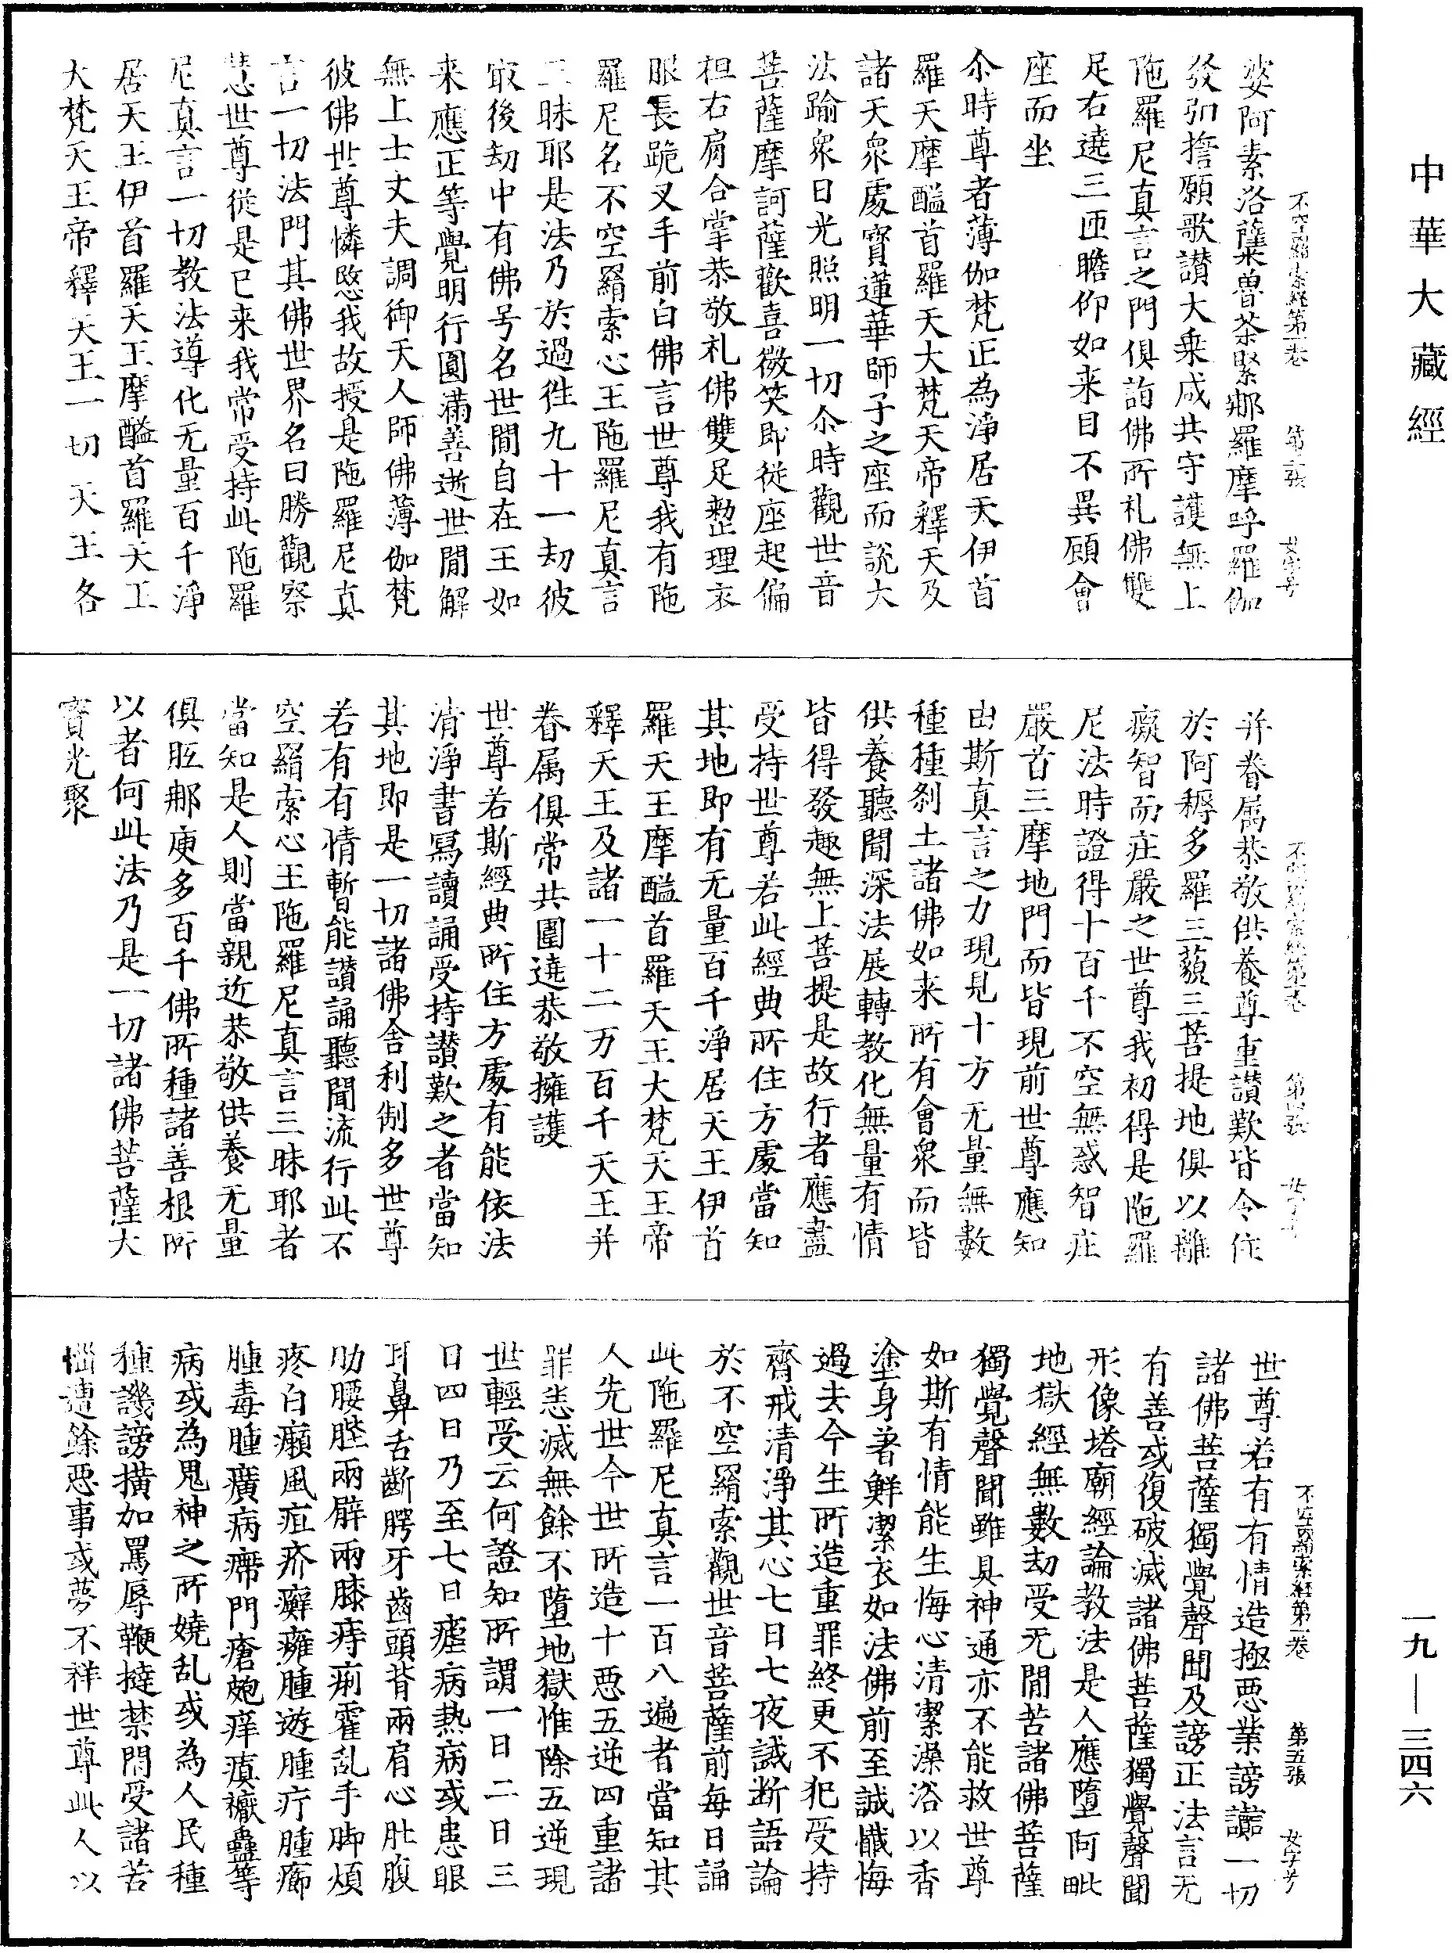 中華大藏經
一九—三四六
不空羂索經第一卷 第三張 女字号
婆阿素洛蘖魯荼緊那羅摩呼羅伽
發弘擔願歌讃大乘咸共守護無上
陁羅尼真言之門俱詣佛所礼佛雙
足右遶三匝瞻仰如来目不異顧會
座而坐
尒時尊者薄伽梵正為淨居天伊首
羅天摩醯首羅天大梵天帝釋天及
諸天衆處寶蓮華師子之座而説大
法踰衆日光照明一切尒時觀世音
菩薩摩訶薩歡喜微笑即從座起偏
袒右肩合掌恭敬礼佛雙足整理衣
服長跪叉手前白佛言世尊我有陁
羅尼名不空羂索心王陁羅尼真言
三昧耶是法乃於過徃九十一劫彼
冣後劫中有佛号名世閒自在王如
来應正等覺明行圓滿善逝世閒解
無上士丈夫調御天人師佛薄伽梵
彼佛世尊憐愍我故授是陁羅尼真
言一切法門其佛世界名曰勝觀察
慧世尊從是已来我常受持此陁羅
尼真言一切教法導化无量百千淨
居天王伊首羅天王摩醯首羅天王
大梵天王帝釋天王一切天王各
不空羂索經第一卷 第四張 女字号
并眷属恭敬供養尊重讃歎皆令住
於阿耨多羅三藐三菩提地俱以離
癡智而庄嚴之世尊我初得是陁羅
尼法時證得十百千不空無惑智庄
嚴首三摩地門而皆現前世尊應知
由斯真言之力現見十方无量無數
種種刹土諸佛如来所有會衆而皆
供養聽聞深法展轉教化無量有情
皆得發趣無上菩提是故行者應盡
受持世尊若此經典所住方處當知
其地即有无量百千淨居天王伊首
羅天王摩醯首羅天王大梵天王帝
釋天王及諸一十二万百千天王并
眷属俱常共圍遶恭敬擁護
世尊若斯經典所住方處有能依法
清淨書寫讀誦受持讃歎之者當知
其地即是一切諸佛舍利制多世尊
若有有情暫能讃誦聽聞流行此不
空羂索心王陁羅尼真言三昧耶者
當知是人則當親近恭敬供養无量
俱胝那庾多百千佛所種諸善根所
以者何此法乃是一切諸佛菩薩大
寶光聚
不空羂索經第一卷 第五張 女字号
世尊若有有情造極惡業謗讟一切
諸佛菩薩獨覺聲聞及謗正法言无
有善或復破滅諸佛菩薩獨覺聲聞
形像塔廟經論教法是人應墮阿毗
地獄經無數劫受无閒苦諸佛菩薩
獨覺聲聞雖具神通亦不能救世尊
如斯有情能生悔心清潔澡浴以香
塗身著鮮潔衣如法佛前至誠懺悔
過去今生所造重罪終更不犯受持
齋戒清淨其心七日七夜誡斷語論
於不空羂索觀世音菩薩前每日誦
此陁羅尼真言一百八遍者當知其
人先世今世所造十惡五逆四重諸
罪悉滅無餘不墮地獄惟除五逆現
世輕受云何證知所謂一日二日三
日四日乃至七日瘧病熱病或患眼
耳鼻舌齗腭牙齒頭背兩肩心肚腹
肋腰䏶兩臂兩膝痔痢霍乱手脚煩
疼白癩風疽疥癬癰腫遊腫疔腫瘺
腫毒腫癀病㾏門瘡皰痒瘨癥蠱等
病或為鬼神之所嬈乱或為人民種
種譏謗撗加罵辱鞭撻禁閇受諸苦
惱遭餘惡事或夢不祥世尊此人以